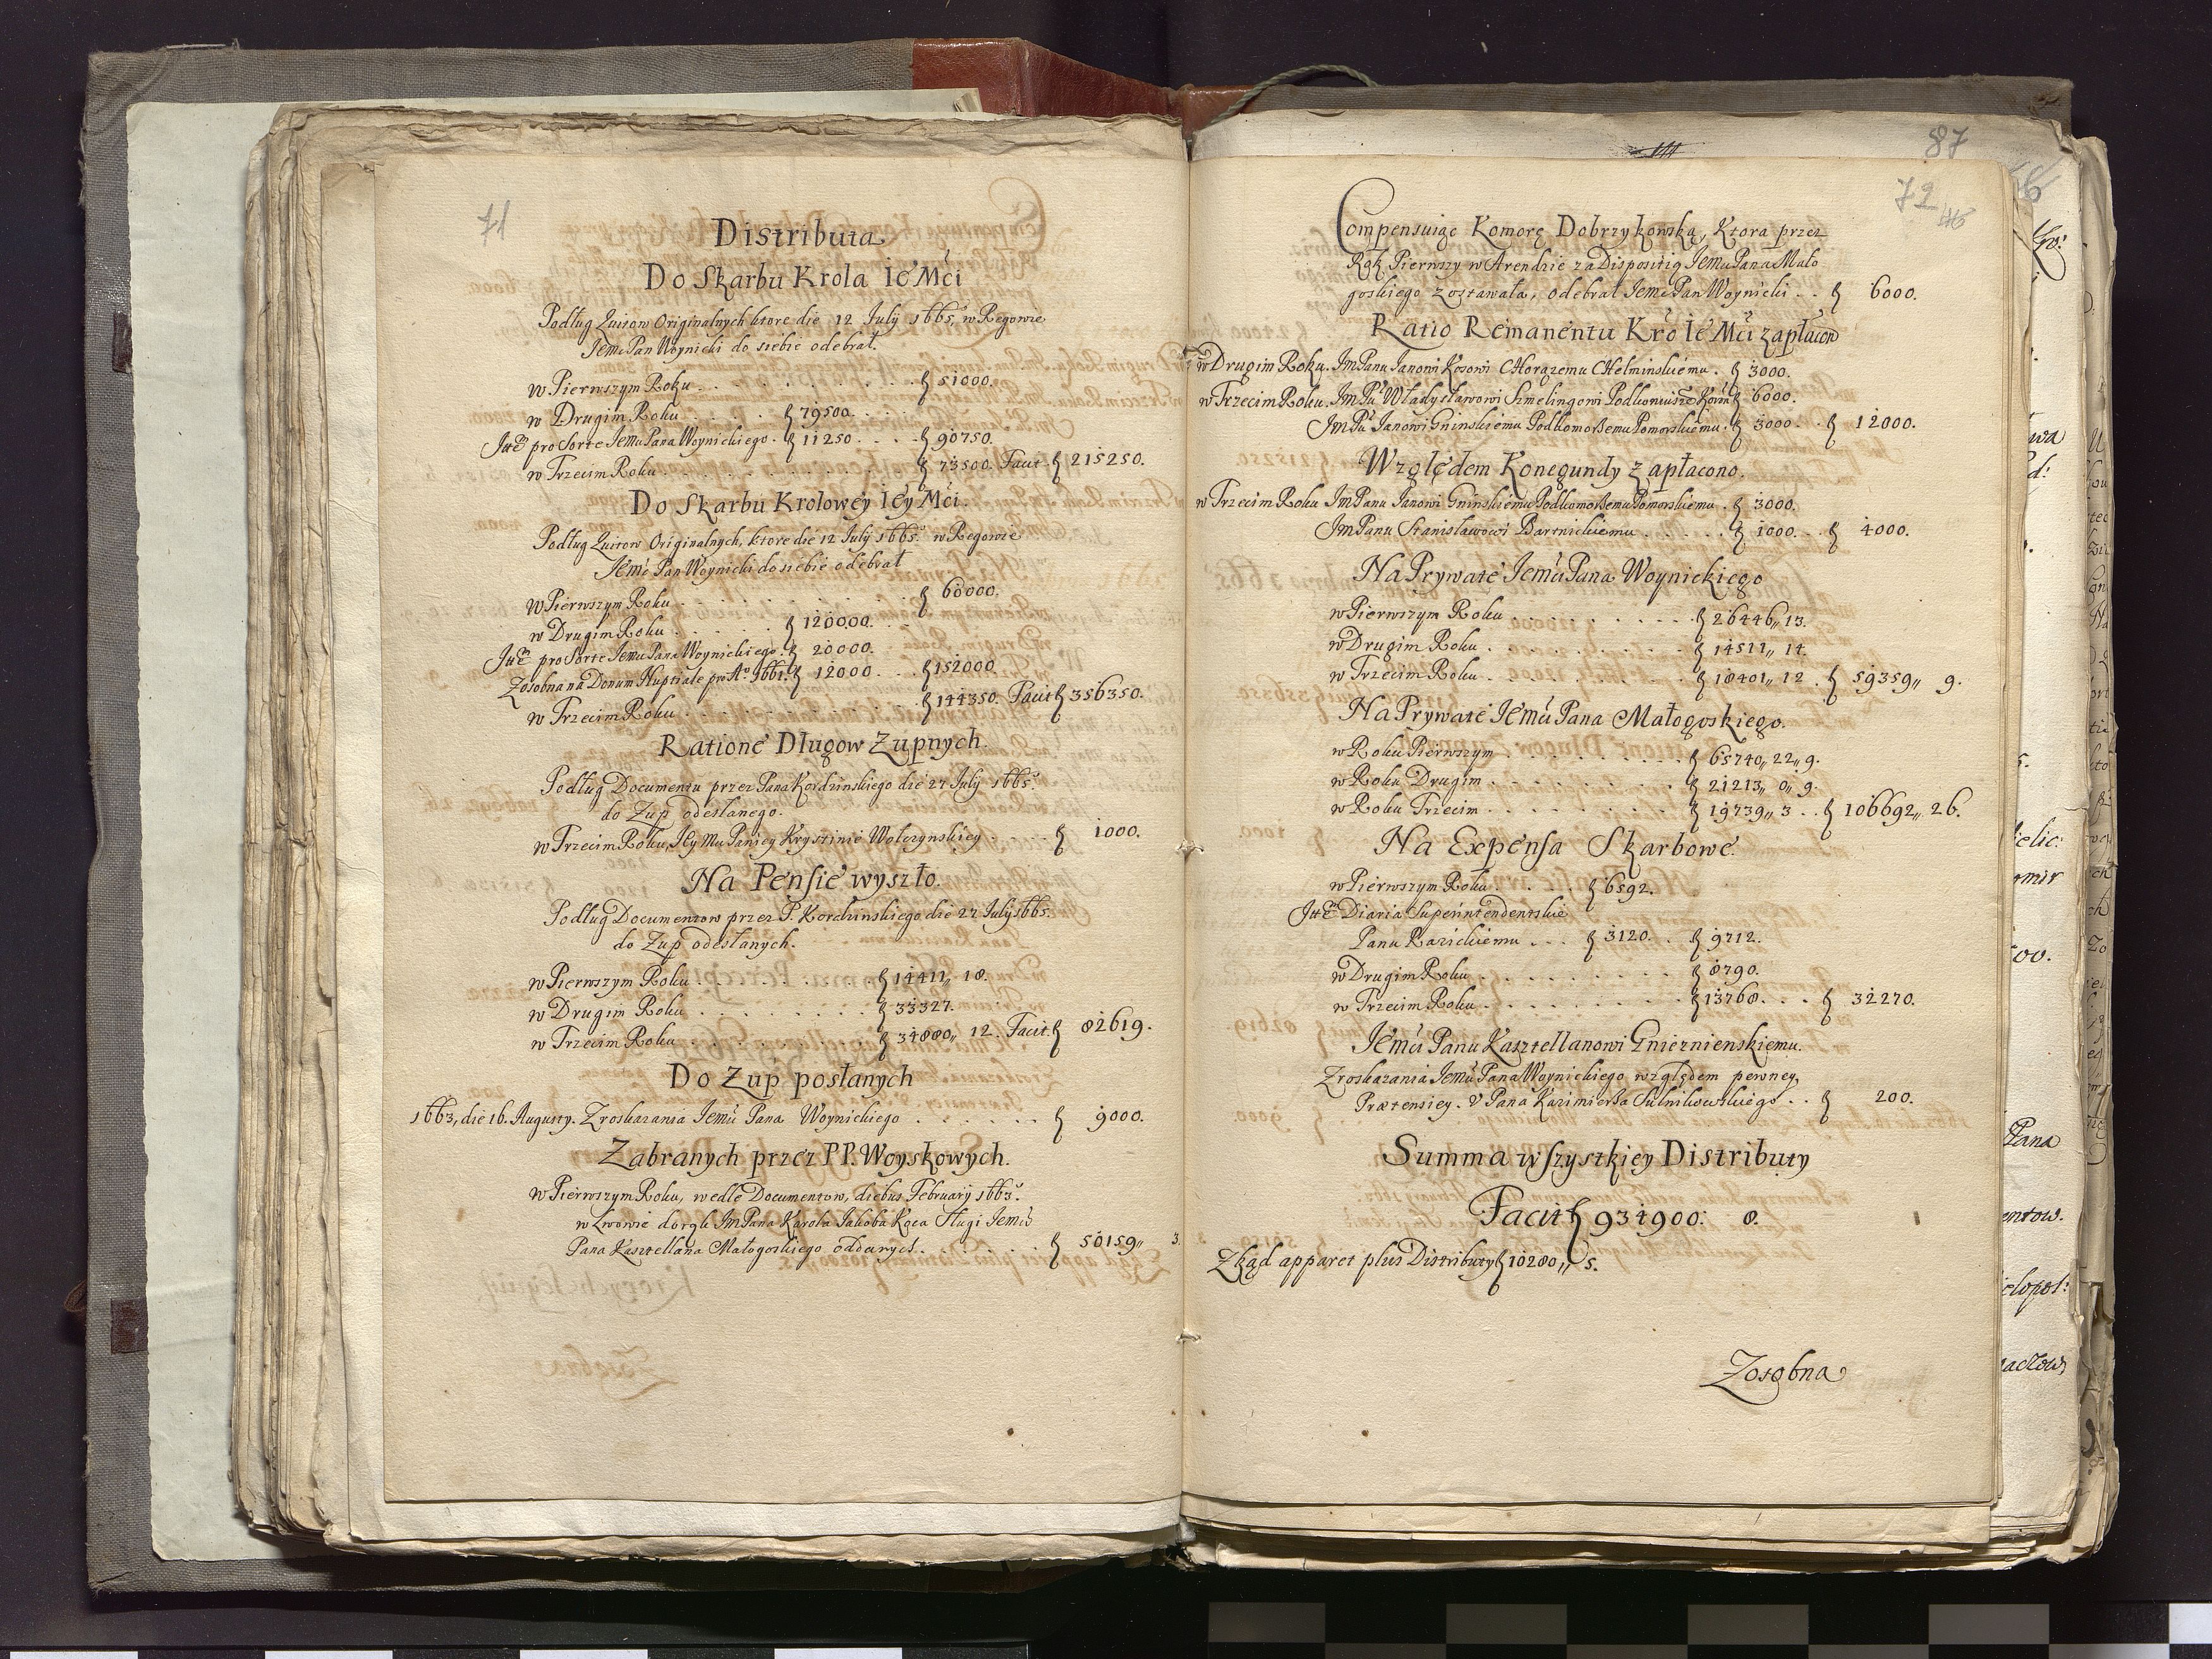 71
Distributa
Do Skarbu Krola Ie Mci
Podług Quitow Originalnych ktore die 12 July 1665, w Regowie
Jemc Pan Woynicki do siebie odebrał.
w Pierwszym Roku . . . . . . . . . . . 51000.
w Drugim Roku . . . . . 79500. . . .
pro Sorte Jemu Pana Woynickiego. 11250. . . . 90750.
w Trzecim Roku . . . . . . . . . . . 73500. Facit 215250.
Do Skarbu Krolowey Iey Mci.
Podług Quitow Originalnych, ktore die 12 July 1665. w Regowie
Jemc Pan Woynicki do siebie odebrał
w Pierwszym Roku . . . . . . . . . . . 60000.
w Drugim Roku . . . . . 120000. . .
pro Sorte Jemu Pana Woynickiego. 20000.
Zosobna na Donum Nuptiale pro Ao 1661. 12000. . . 152000
w Trzecim Roku . . . . . . . . . . . 144350. Facit 356350.
Ratione Długow Zupnych.
Podług Documentu przez Pana Kordzinskiego die 27 July 1665.
do Zup odesłanego.
w Trzecim Roku, Iey Mu Paniey Krystinie Wolczynskiey . . . . 1000.
Na Pensie wyszło.
Podług Documentow przez P. Kordzinskiego die 27 July 1665.
do Zup odesłanych.
w Pierwszym Roku . . . . . . . . . 14411,, 18.
w Drugim Roku . . . . . . . . . 33327.
w Trzecim Roku . . . . . . . . . 34880,, 12. Facit 82619.
Do Zup posłanych
1663, die 16. Augusty. Zroskazania Jemu Pana Woynickiego . . . . . . 9000.
Zabranych przez PP. Woyskowych.
w Pierwszym Roku, wedle Documentow, diebus February 1663.
w Lwowie do rąk Jm Pana Karola Jakoba Kąca Sługi Jemu
Pana Kasztellana Małogoskiego oddanych . . . . . . 50159,, 3.
87
72
Compensuiąc Komorę Dobrzykowską, Ktora przez
Rok Pierwszy w Arendzie za Dispositią Jemu Pana Mało
goskiego zostawała, odebrał Jemc Pan Woynicki . . 6000.
Ratio Remanentu Kro Ie Mci zapłacon
w Drugim Roku. Jm Panu Janowi Kosowi CHorązemu CHelminskiemu . 3000.
w Trzecim Roku. Jm Pu Władysławowi Szmelingowi Podkoniusze 6000.
Jm Pu Janowi Gninskiemu Podkomorzemu Pomorskiemu . 3000. . 12000.
Względem Konegundy zapłacono.
w Trzecim Roku Jm Panu Janowi Gninskiemu Podkomorzemu Pomorskiemu . 3000.
Jm Panu Stanisławowi Bartnickiemu . . . . . 1000. . 4000.
Na Prywate Jemu Pana Woynickiego
w Pierwszym Roku . . . . . . . . 26446,, 13.
w Drugim Roku . . . . . . . . . 14511,, 14.
w Trzecim Roku . . . . . . . . . 18401,, 12 . 59359,, 9.
Na Prywate Jemu Pana Małogoskiego.
w Roku Pierwszym . . . . . . . . 65740,, 22,, 9.
w Roku Drugim . . . . . . . . . 21213,, 0,, 9.
w Roku Trzecim . . . . . . . . . 19739,, 3 . . 106692,, 26.
Na Expensa Skarbowe.
w Pierwszym Roku . . . . . 6592.
Diaria Superintendentskie
Panu Razickiemu . . . 3120. . 9712.
w Drugim Roku . . . . . . . . . 8790.
w Trzecim Roku . . . . . . . . . 13768. . . . 32270.
Jemu Panu Kasztellanowi Gnieznienskiemu.
Zroskazania Jemu Pana Woynickiego względem pewney
Prætensiey. V Pana Kazimierza Sulnikowskiego . . 200.
Summa wszystkiey Distributy
Facit 934900. 8.
Zkąd apparet plus Distributy 10280,, 5.
Zosobna